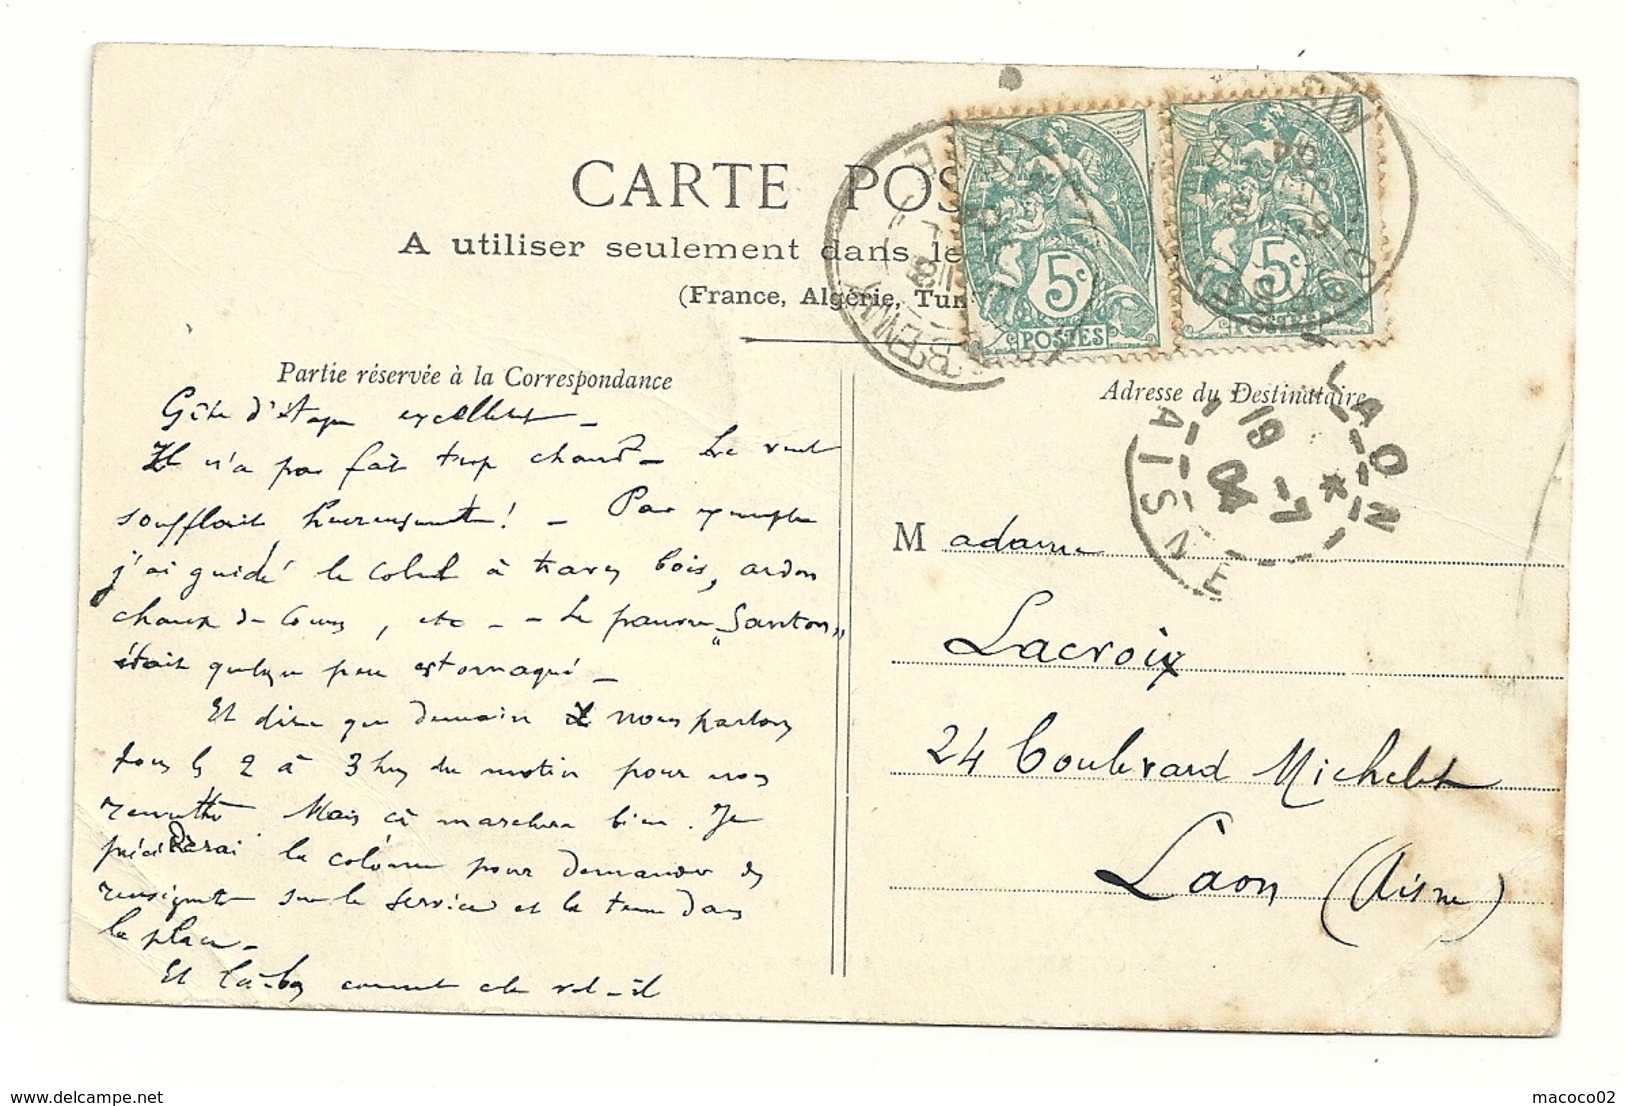 CARTE POS
A utiliser seulement dans le
(France, Algérie, Tun
Partie réservée à la Correspondance
Gîte d'étape excellent -
Il n'a pas fait trop chaud - Le vent
soufflait heureusement! - Par exemple
j'ai guidé le Colonel à travers bois,
chaux de , etc - - Le pauvre "Santon"
était quelque peu estomaqué -
Et dire que demain nous partons
tous les 2 à 3 hres du matin pour nous
remettre Mais ça marchera bien. Je
précéderai la colonne pour demander des
renseignts sur le service et la tenue dans
la place -
Et là-bas comment cela va-t-il
Adresse du Destinataire
M adame
Lacroix
24 boulevard Michelet
Laon (Aisne)
5c
POSTES
5c
POSTES
LAON
AISNE
19 -7
04
macoco02